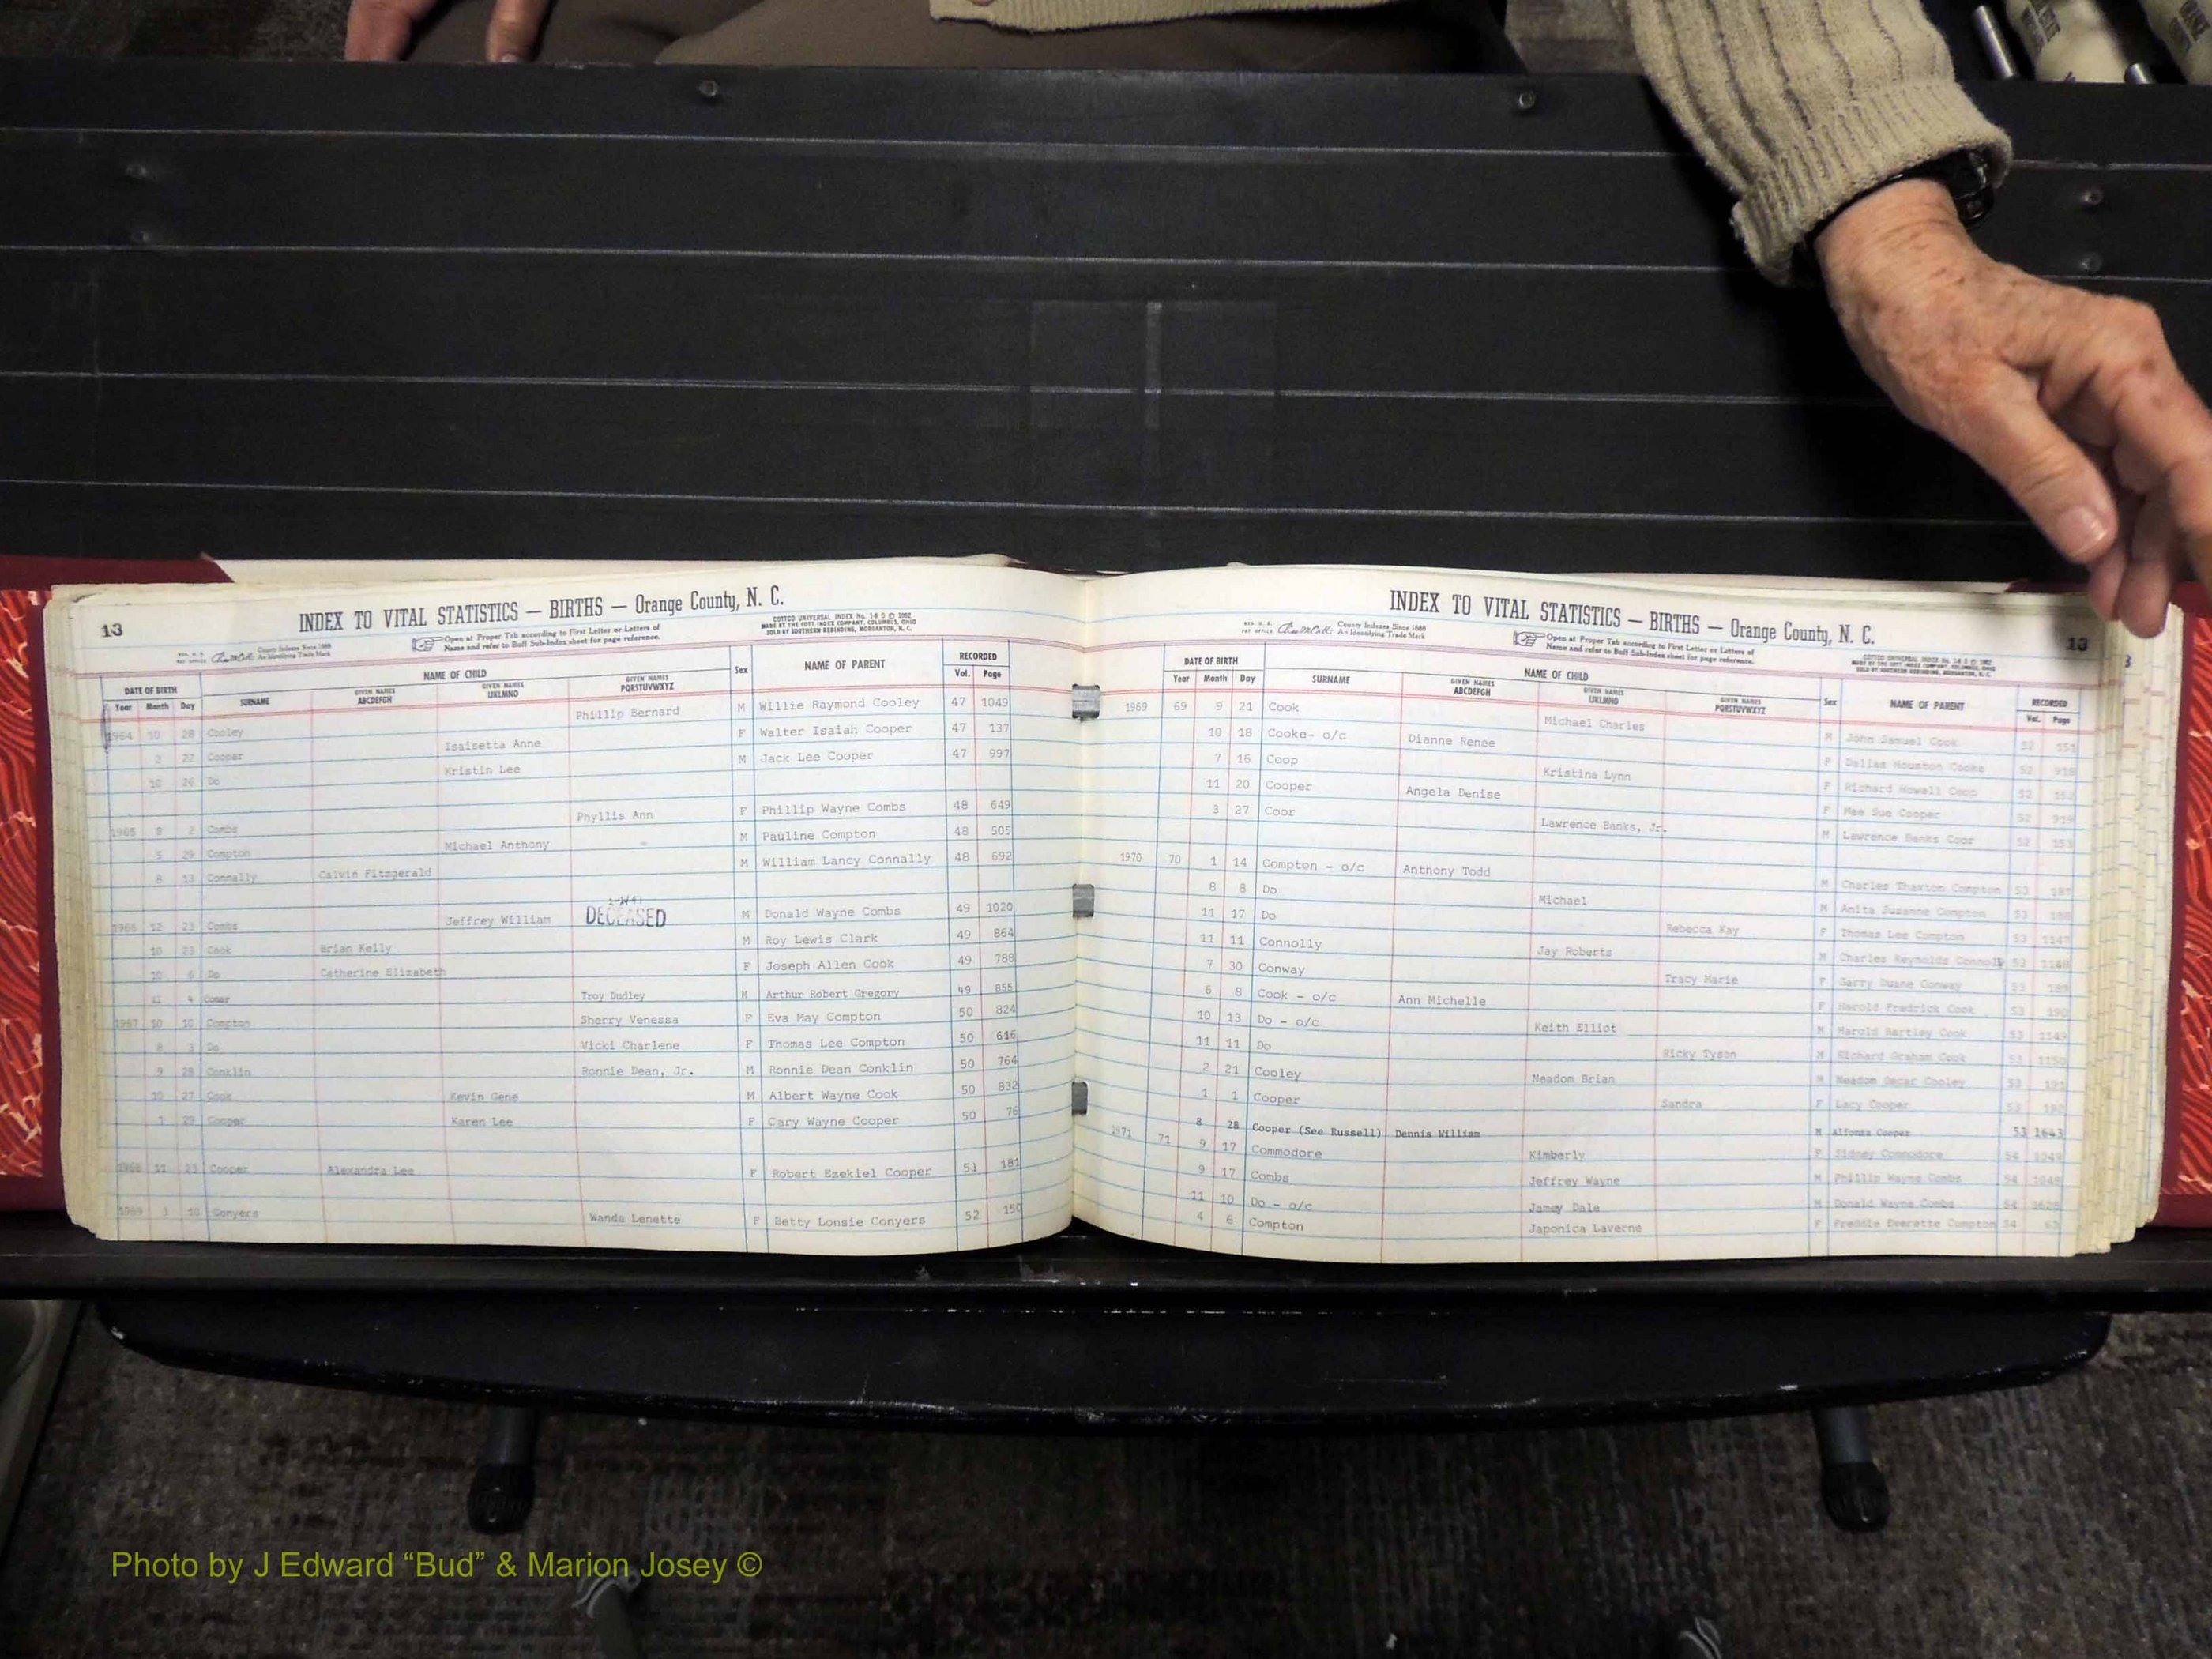 13
INDEX TO VITAL STATISTICS — BIRTHS — Orange County, N. C.
County Indexes Since 1888
An Identifying Trade Mark
Open at Proper Tab according to First Letter or Letters of
Name and refer to Buff Sub-Index sheet for page reference.
COTTCO UNIVERSAL INDEX
MADE BY THE COTT INDEX COMPANY, COLUMBUS, OHIO
SOLD BY SOUTHERN REBINDING, MORGANTON, N. C.
DATE OF BIRTH NAME OF CHILD Sex NAME OF PARENT RECORDED
Year Month Day SURNAME GIVEN NAMES ABCDEFGH GIVEN NAMES IJKLMNO GIVEN NAMES PQRSTUVWXYZ Vol. Page
1964 10 28 Cooley Phillip Bernard M Willie Raymond Cooley 47 1049
2 22 Cooper Isaisetta Anne F Walter Isaiah Cooper 47 137
10 26 Do Kristin Lee M Jack Lee Cooper 47 997
1965 8 2 Combs Phyllis Ann F Phillip Wayne Combs 48 649
5 29 Compton Michael Anthony M Pauline Compton 48 505
8 13 Connally Calvin Fitzgerald M William Lancy Connally 48 692
1966 12 23 Combs Jeffrey William DECEASED M Donald Wayne Combs 49 1020
10 23 Cook Brian Kelly M Roy Lewis Clark 49 864
10 6 Do Catherine Elizabeth F Joseph Allen Cook 49 788
11 4 Troy Dudley M Arthur Robert Gregory 49 855
1967 10 10 Compton Sherry Venessa F Eva May Compton 50 824
8 3 Do Vicki Charlene F Thomas Lee Compton 50 616
9 28 Conklin Ronnie Dean, Jr. M Ronnie Dean Conklin 50 764
10 27 Cook Kevin Gene M Albert Wayne Cook 50 832
5 29 Cooper Karen Lee F Cary Wayne Cooper 50 76
1968 11 23 Cooper Alexandra Lee F Robert Ezekiel Cooper 51 181
1969 3 10 Conyers Wanda Lenette F Betty Lonsie Conyers 52 150
INDEX TO VITAL STATISTICS — BIRTHS — Orange County, N. C.
13
County Indexes Since 1888
An Identifying Trade Mark
Open at Proper Tab according to First Letter or Letters of
Name and refer to Buff Sub-Index sheet for page reference.
DATE OF BIRTH NAME OF CHILD Sex NAME OF PARENT RECORDED
Year Month Day SURNAME GIVEN NAMES ABCDEFGH GIVEN NAMES IJKLMNO GIVEN NAMES PQRSTUVWXYZ Vol. Page
1969 69 9 21 Cook Michael Charles M John Samuel Cook 52 151
10 18 Cooke- o/c Dianne Renee F Dallas Houston Cooke 52 918
7 16 Coop Kristina Lynn F Richard Howell Coop 52 152
11 20 Cooper Angela Denise F Mae Sue Cooper 52 919
3 27 Coor Lawrence Banks, Jr. M Lawrence Banks Coor 52 153
1970 70 1 14 Compton - o/c Anthony Todd M Charles Thaxton Compton 53 187
8 8 Do Michael M Anita Suzanne Compton 53 188
11 17 Do Rebecca Kay F Thomas Lee Compton 53 1147
11 11 Connolly Jay Roberts M Charles Reynolds Connolly 53 1148
7 30 Conway Tracy Marie F Garry Duane Conway 53 189
6 8 Cook - o/c Ann Michelle F Harold Fredrick Cook 53 190
10 13 Do - o/c Keith Elliot M Harold Hartley Cook 53 1149
11 11 Do Ricky Tyson M Richard Graham Cook 53 1150
2 21 Cooley Neadom Brian M Neadom Oscar Cooley 53 191
1 1 Cooper Sandra F Lacy Cooper 53 192
8 28 Cooper (See Russell) Dennis William M Alfonza Cooper 53 1643
1971 71 9 17 Commodore Kimberly F Sidney Commodore 54 1049
9 17 Combs Jeffrey Wayne M Phillip Wayne Combs 54 1048
11 10 Do - o/c Jamey Dale M Donald Wayne Combs 54
4 6 Compton Japonica Laverne F Freddie Everette Compton 54 63
Photo by J Edward “Bud” & Marion Josey ©